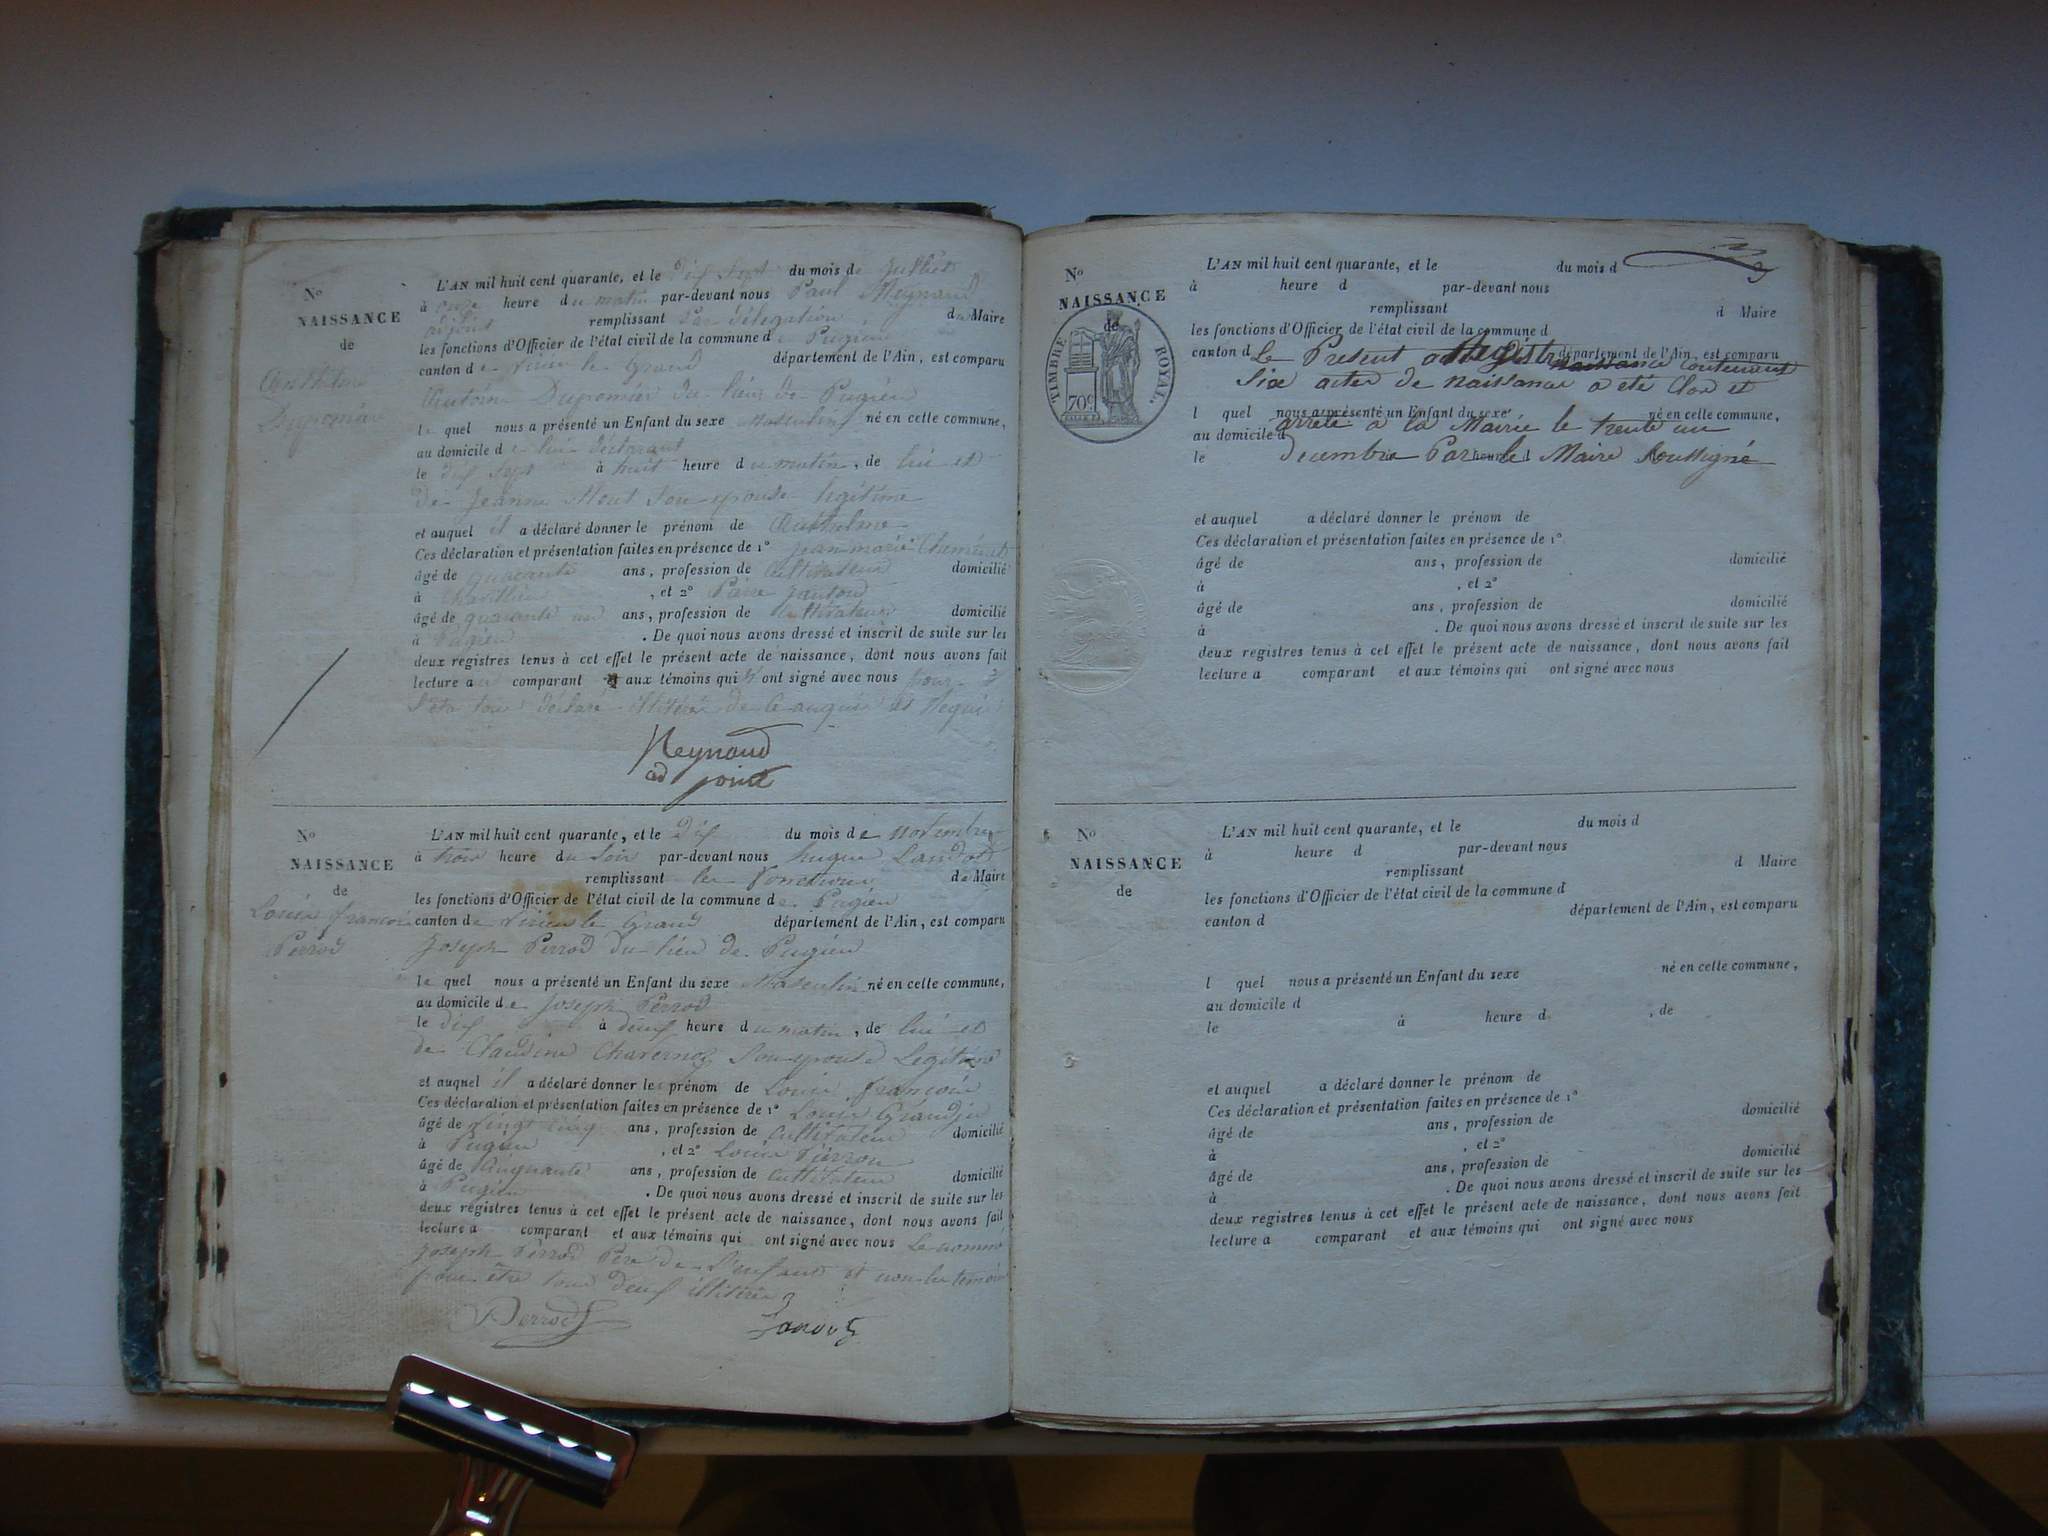 N°
NAISSANCE
de
Anthelme
Dupomier
L'AN mil huit cent quarante, et le dix sept du mois de Juillet
à onze heure du matin par-devant nous Paul Meynaud
adjoint remplissant Par délégation du Maire
les fonctions d'Officier de l'état civil de la commune de Pugieu
canton de Virieu le Grand département de l'Ain, est comparu
Antoine Dupomier du lieu de Pugieu
le quel nous a présenté un Enfant du sexe Masculin né en cette commune,
au domicile de lui déclarant
le dix sept à huit heure du matin, de lui et
de Jeanne Mont Son epouse legitime
et auquel il a déclaré donner le prénom de Anthelme
Ces déclaration et présentation faites en présence de 1° jean marie
âgé de quarante ans, profession de Cultivateur domicilié
à , et 2° Pierre
âgé de quarante un ans, profession de Cultivateur domicilié
à Pugieu . De quoi nous avons dressé et inscrit de suite sur les
deux registres tenus à cet effet le présent acte de naissance, dont nous avons fait
lecture au comparant et aux témoins qui n'ont signé avec nous pour
tous déclaré illitéré de ce enquis et Requis
Meynaud
adjoint
N°
NAISSANCE
de
Louis francois
Perrod
L'AN mil huit cent quarante, et le dix du mois de novembre
à trois heure du Soir par-devant nous hugue Landot
remplissant les fonctions de Maire
les fonctions d'Officier de l'état civil de la commune de Pugieu
canton de Virieu le Grand département de l'Ain, est comparu
Joseph Perrod du lieu de Pugieu
le quel nous a présenté un Enfant du sexe Masculin né en cette commune,
au domicile de Joseph Perrod
le dix à deux heure du matin, de lui et
de Claudine Charernoz Son epouse Legitime
et auquel il a déclaré donner le prénom de Louis francois
Ces déclaration et présentation faites en présence de 1° Louis
âgé de vingt cinq ans, profession de Cultivateur domicilié
à Pugieu , et 2° Louis
âgé de Cinquante ans, profession de Cultivateur domicilié
à Pugieu . De quoi nous avons dressé et inscrit de suite sur les
deux registres tenus à cet effet le présent acte de naissance, dont nous avons fait
lecture a comparant et aux témoins qui ont signé avec nous Le nommé
Joseph Perrod Pere de l'enfant et non les temoin
pour être tous deux illitéré
Perrod Landot
N°
NAISSANCE
de
TIMBRE ROYAL.
70c
L'AN mil huit cent quarante, et le du mois d
à heure d par-devant nous
remplissant d Maire
les fonctions d'Officier de l'état civil de la commune d
canton d département de l'Ain, est comparu
Le Present Registre naissance contenent
Six actes de naissance a eté Clos et
l quel nous a présenté un Enfant du sexe né en cette commune,
arreté a la Mairie le trente un
au domicile d
le heure d
decembre Par le Maire Soussigné
et auquel a déclaré donner le prénom de
Ces déclaration et présentation faites en présence de 1°
âgé de ans, profession de domicilié
à , et 2°
âgé de ans, profession de domicilié
à . De quoi nous avons dressé et inscrit de suite sur les
deux registres tenus à cet effet le présent acte de naissance, dont nous avons fait
lecture a comparant et aux témoins qui ont signé avec nous
N°
NAISSANCE
de
L'AN mil huit cent quarante, et le du mois d
à heure d par-devant nous
remplissant d Maire
les fonctions d'Officier de l'état civil de la commune d
canton d département de l'Ain, est comparu
l quel nous a présenté un Enfant du sexe né en cette commune,
au domicile d
le à heure d , de
et auquel a déclaré donner le prénom de
Ces déclaration et présentation faites en présence de 1°
âgé de ans, profession de domicilié
à , et 2°
âgé de ans, profession de domicilié
à . De quoi nous avons dressé et inscrit de suite sur les
deux registres tenus à cet effet le présent acte de naissance, dont nous avons fait
lecture a comparant et aux témoins qui ont signé avec nous